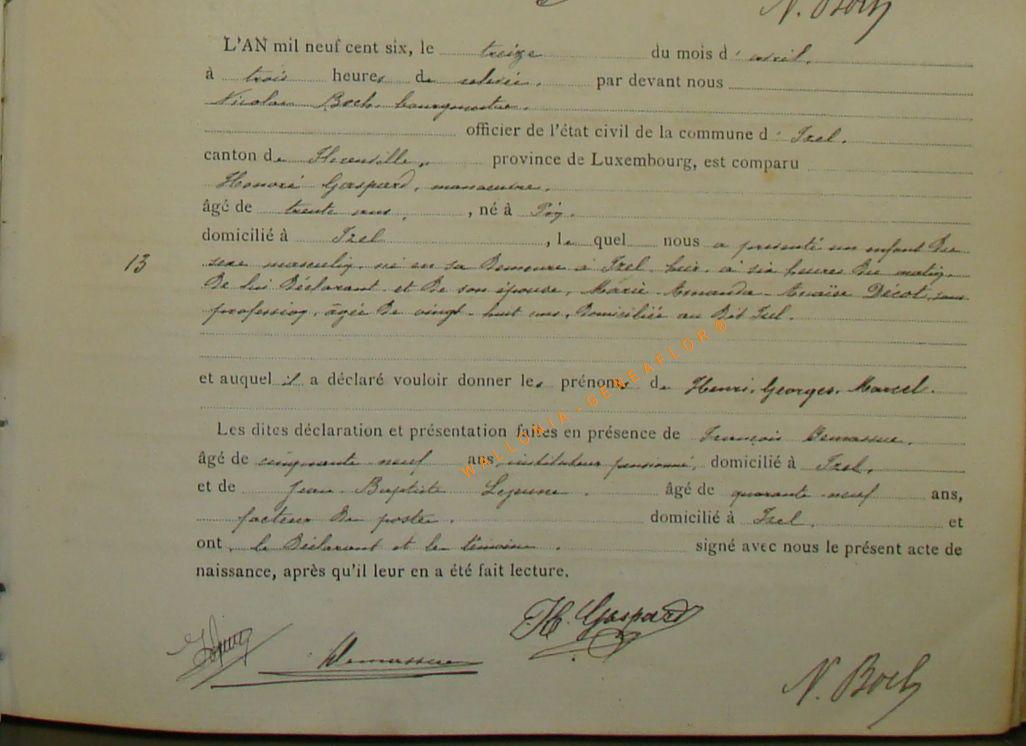 N. Boch
L'AN mil neuf cent six, le treize du mois d'avril,
à trois heures de relevée, par devant nous
Nicolas Boch, bourgmestre,
officier de l'état civil de la commune d'Izel,
canton de Florenville, province de Luxembourg, est comparu
Honoré Gaspard, manoeuvre,
âgé de trente ans, né à
domicilié à Izel, lequel nous a présenté un enfant du
13 sexe masculin, né en sa demeure à Izel, hier, à six heures du matin,
De lui Déclarant et De son épouse, Marie-Amanda-Anaïse Décot, sans
profession, âgée De vingt-huit ans, Domiciliée au Dit Izel.
et auquel il a déclaré vouloir donner les prénoms de Henri, Georges, Marcel.
Les dites déclaration et présentation faites en présence de François Demassue,
âgé de cinquante neuf ans, instituteur pensionné, domicilié à Izel,
et de Jean-Baptiste Lejeune, âgé de quarante-neuf ans,
facteur De poste, domicilié à Izel, et
ont, le Déclarant et les témoins, signé avec nous le présent acte de
naissance, après qu'il leur en a été fait lecture.
H. Gaspard
Demassue
N. Boch
WALLONIA-GENEAFLOR®